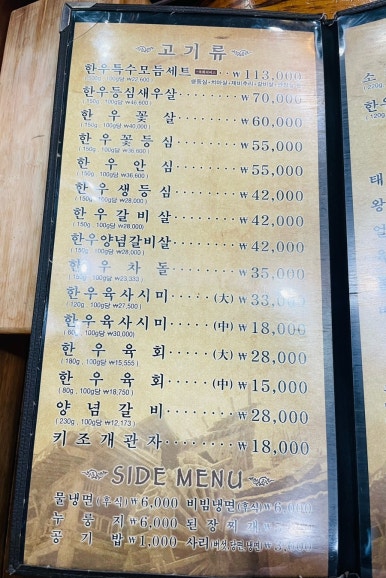 고기류
한우특수모듬세트 ₩113,000
한우등심새우살 ₩70,000
(150g, 100g당 ₩46,600)
한우꽃살 ₩60,000
(150g, 100g당 ₩40,000)
한우꽃등심 ₩55,000
(150g, 100g당 ₩36,600)
한우안심 ₩55,000
(150g, 100g당 ₩36,600)
한우생등심 ₩42,000
(150g, 100g당 ₩28,000)
한우갈비살 ₩42,000
(150g, 100g당 ₩28,000)
한우양념갈비살 ₩42,000
(150g, 100g당 ₩28,000)
한우차돌 ₩35,000
(150g, 100g당 ₩23,333)
한우육사시미 (大) ₩33,000
(120g, 100g당 ₩27,500)
한우육사시미 (中) ₩18,000
(60g, 100g당 ₩30,000)
한우육회 (大) ₩28,000
(180g, 100g당 ₩15,555)
한우육회 (中) ₩15,000
(80g, 100g당 ₩18,750)
양념갈비 ₩28,000
(230g, 100g당 ₩12,173)
키조개관자 ₩18,000
SIDE MENU
물냉면(후식) ₩6,000 비빔냉면(후식) ₩6,000
누룽지 ₩6,000 된장찌개
공기밥 ₩1,000 사리